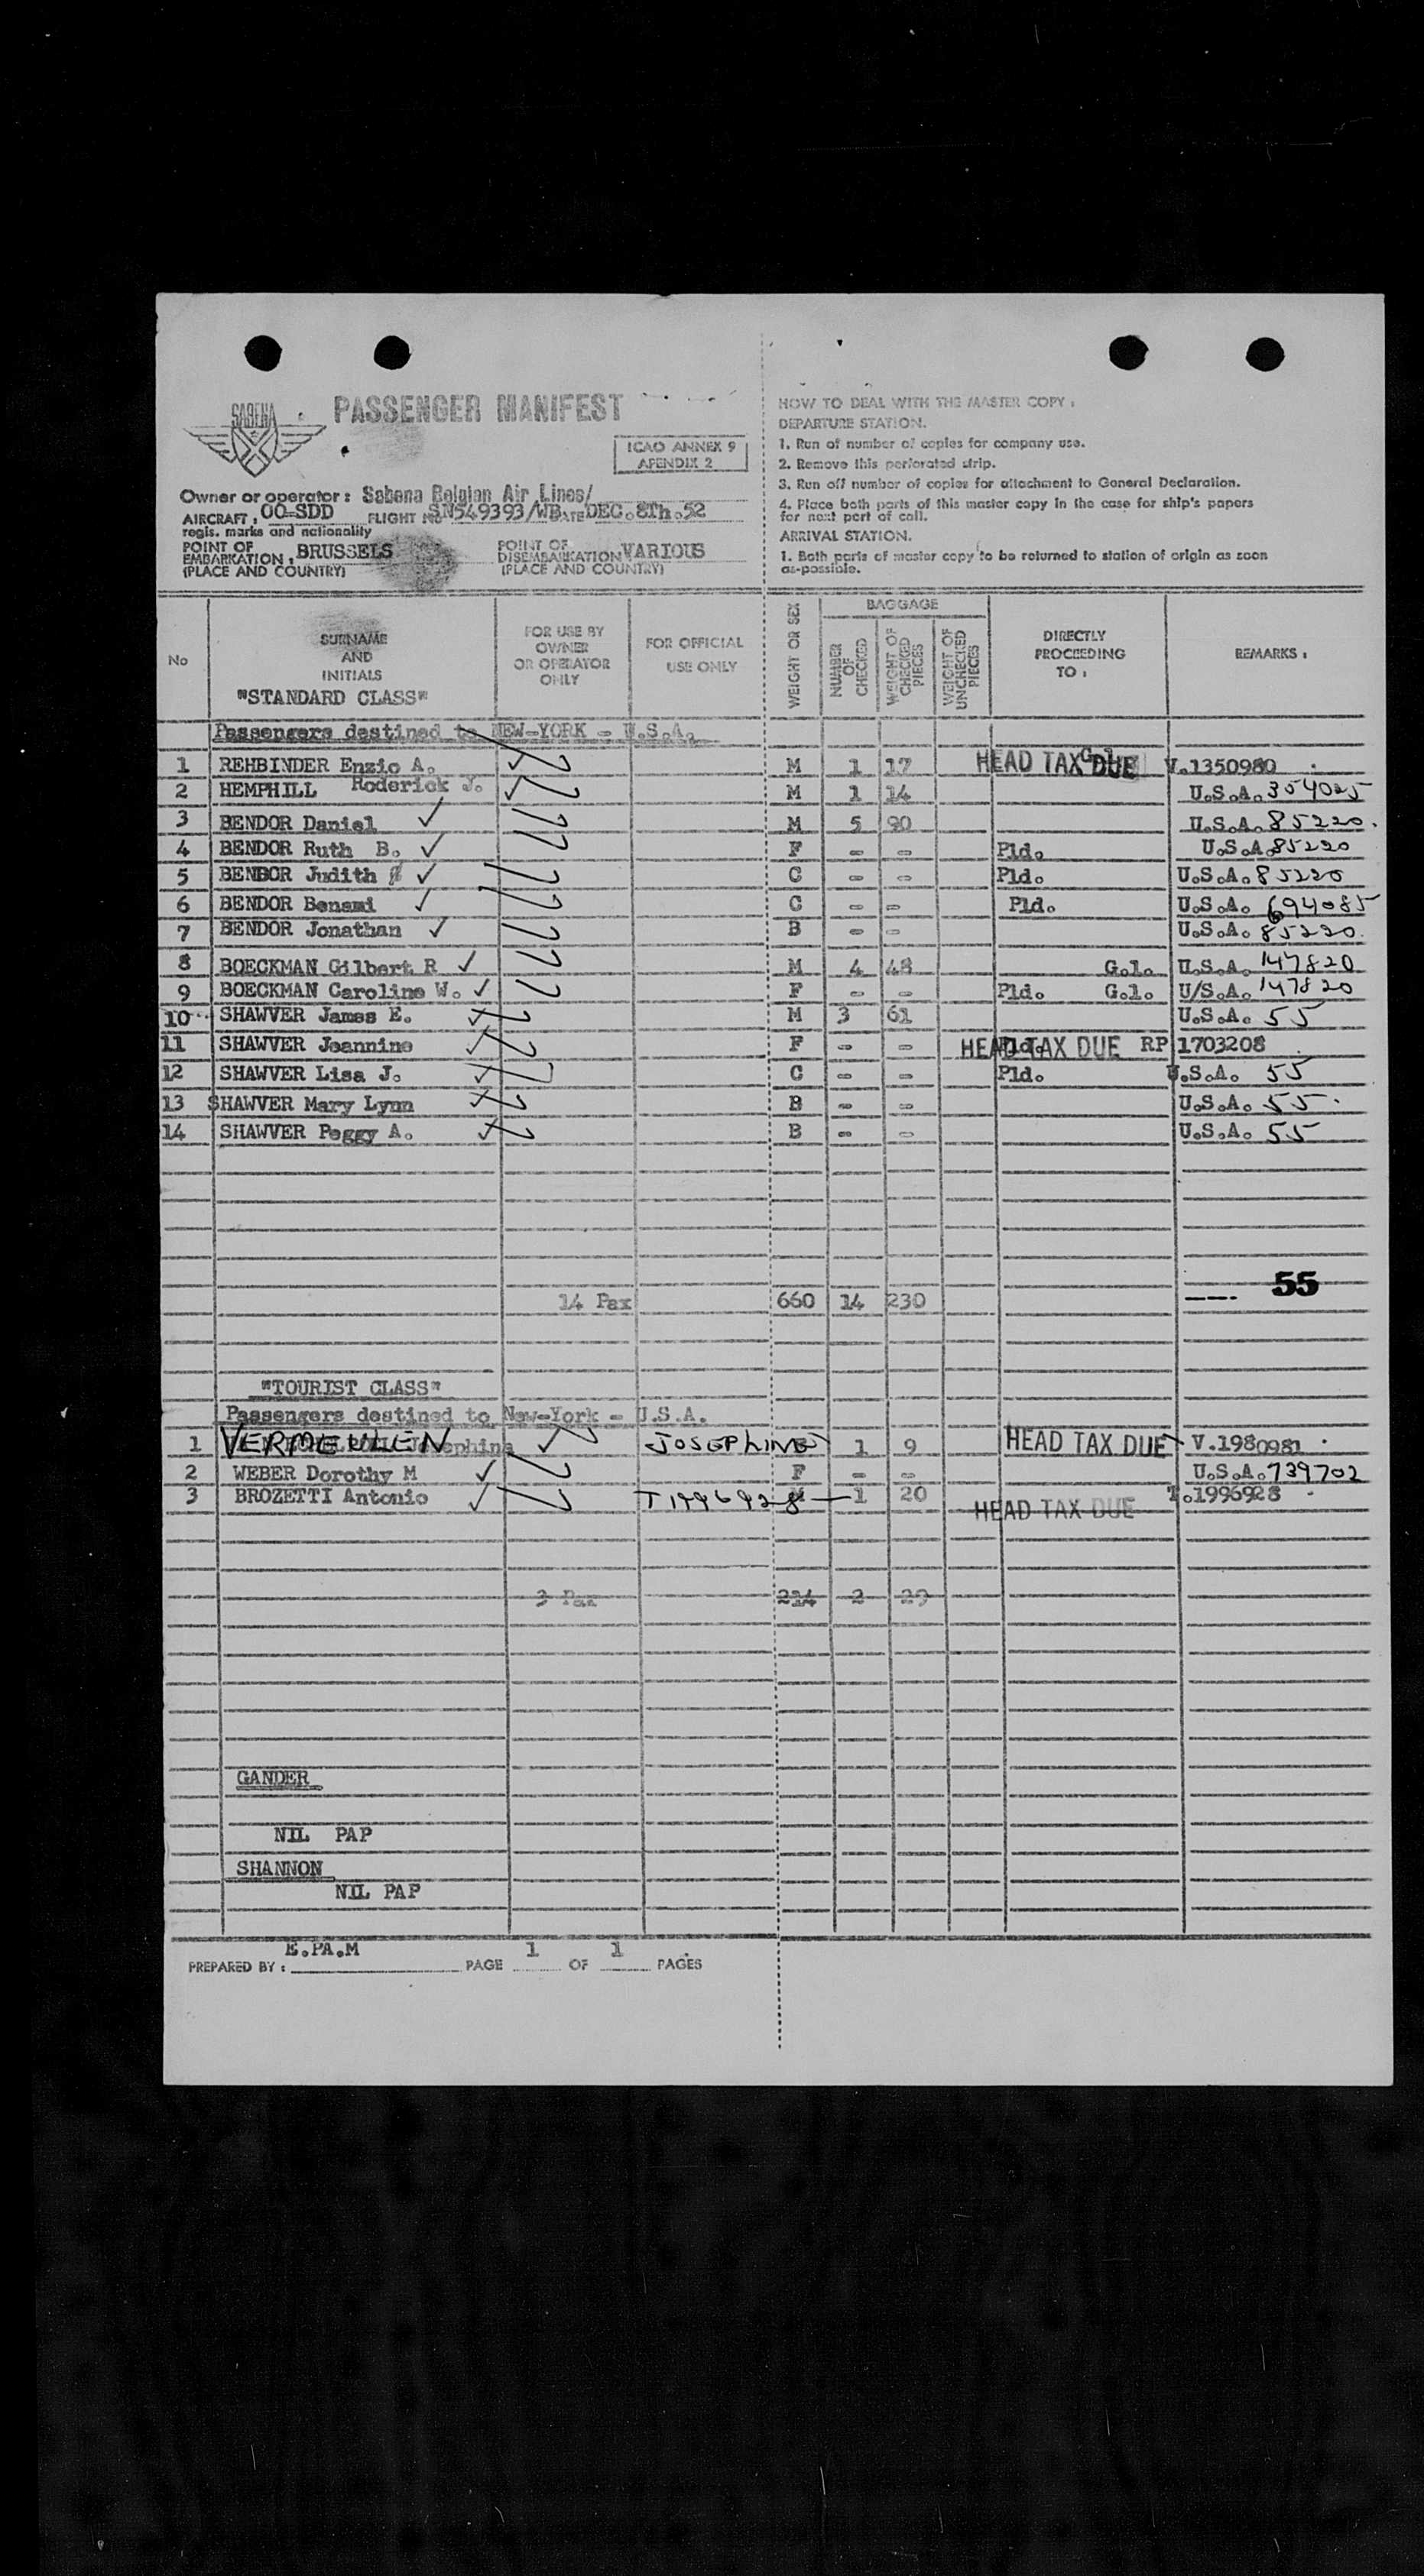 SABENA
PASSENGER MANIFEST
ICAO ANNEX 9
APENDIX 2
Owner or operator : Sabena Belgian Air Lines/
AIRCRAFT : OO-SDD FLIGHT No SN549393/WB DATE DEC.8Th.52
regis. marks and nationality
POINT OF EMBARKATION : BRUSSELS POINT OF DISEMBARKATION VARIOUS
(PLACE AND COUNTRY) (PLACE AND COUNTRY)
HOW TO DEAL WITH THE MASTER COPY :
DEPARTURE STATION.
1. Run of number of copies for company use.
2. Remove this perforated strip.
3. Run off number of copies for attachment to General Declaration.
4. Place both parts of this master copy in the case for ship's papers
for next port of call.
ARRIVAL STATION.
1. Both parts of master copy to be returned to station of origin as soon
as-possible.
No SURNAME AND INITIALS "STANDARD CLASS" FOR USE BY OWNER OR OPERATOR ONLY FOR OFFICIAL USE ONLY WEIGHT OR SEX BAGGAGE NUMBER OF CHECKED WEIGHT OF CHECKED PIECES WEIGHT OF UNCHECKED PIECES DIRECTLY PROCEEDING TO : REMARKS :
Passengers destined to NEW-YORK - U.S.A.
1 REHBINDER Enzio A. M 1 17 HEAD TAX DUE V.1350980
2 HEMPHILL Roderick J. M 1 14 U.S.A. 354025
3 BENDOR Daniel M 5 90 U.S.A. 85220.
4 BENDOR Ruth B. F - - Pld. U.S.A. 85220
5 BENDOR Judith C - - Pld. U.S.A. 85220
6 BENDOR Benami C - - Pld. U.S.A. 694085
7 BENDOR Jonathan B - - U.S.A. 85220.
8 BOECKMAN Gilbert R M 4 48 G.l. U.S.A. 147820
9 BOECKMAN Caroline W. F - - Pld. G.l. U/S.A. 147820
10 SHAWVER James E. M 3 61 U.S.A. 55
11 SHAWVER Jeannine F - - Pld. HEAD TAX DUE RP 1703208
12 SHAWVER Lisa J. C - - Pld. U.S.A. 55
13 SHAWVER Mary Lynn B - - U.S.A. 55.
14 SHAWVER Peggy A. B - - U.S.A. 55
---- 55
14 Pax 660 14 230
"TOURIST CLASS"
Passengers destined to New-York - U.S.A.
1 VERMEULEN Josephina JOSEPHINE 1 9 HEAD TAX DUE V.1980981
2 WEBER Dorothy M F - - U.S.A. 739702
3 BROZETTI Antonio T1996928 1 20 T.1996928
HEAD TAX DUE
3 Pax 224 2 29
GANDER
NIL PAP
SHANNON
NIL PAP
PREPARED BY : E.PA.M PAGE 1 OF 1 PAGES